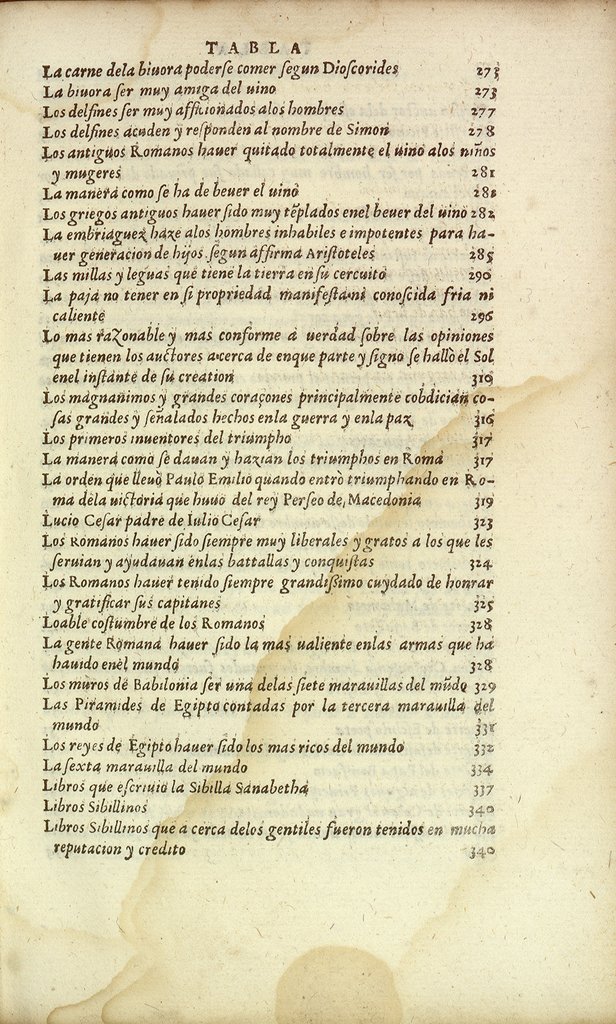 TABLA
La carne dela biuora poderse comer ſegun Dioſcorides 273
La biuora ſer muy amiga del uino 273
Los delfines ſer muy afficionados alos hombres 277
Los delfines acuden y reſponden al nombre de Simon 278
Los antiguos Romanos hauer quitado totalmente el uino alos niños
y mugeres 281
La manera como ſe ha de beuer el uino 281
Los griegos antiguos hauer ſido muy tẽplados enel beuer del uino 282
La embriaguez haze alos hombres inhabiles e impotentes para ha-
uer generacion de hijos ſegun affirma Ariſtoteles 285
Las millas y leguas que tiene la tierra en ſu cercuito 290
La paja no tener en ſi propriedad manifeſta ni conoſcida fria ni
caliente 296
Lo mas razonable y mas conforme a uerdad ſobre las opiniones
que tienen los auctores acerca de enque parte y ſigno ſe hallò el Sol
enel inſtante de ſu creation 310
Los magnanimos y grandes coraçones principalmente cobdician co-
ſas grandes y ſeñalados hechos enla guerra y enla paz 316
Los primeros inuentores del triumpho 317
La manera como ſe dauan y hazian los triumphos en Roma 317
La orden que lleuò Paulo Emilio quando entrò triumphando en Ro-
ma dela uictoria que huuo del rey Perſeo de Macedonia 319
Lucio Ceſar padre de Iulio Ceſar 323
Los Romanos hauer ſido ſiempre muy liberales y gratos a los que les
ſeruian y ayudauan enlas battallas y conquiſtas 324
Los Romanos hauer tenido ſiempre grandiſsimo cuydado de honrar
y gratificar ſus capitanes 325
Loable coſtumbre de los Romanos 328
La gente Romana hauer ſido la mas ualiente enlas armas que ha
hauido enel mundo 328
Los muros de Babilonia ſer una delas ſiete marauillas del mũdo 329
Las Piramides de Egipto contadas por la tercera marauilla del
mundo 331
Los reyes de Egipto hauer ſido los mas ricos del mundo 332
La ſexta marauilla del mundo 334
Libros que eſcriuio la Sibilla Sanabetha 337
Libros Sibillinos 340
Libros Sibillinos que a cerca delos gentiles fueron tenidos en mucha
reputacion y credito 340